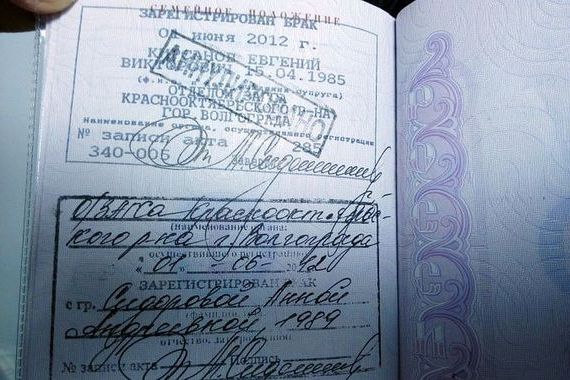 СЕМЕЙНОЕ ПОЛОЖЕНИЕ
ЗАРЕГИСТРИРОВАН БРАК
01 июня 2012 г.
ЕВГЕНИЙ
15.04.1985
ОТДЕЛОМ
КРАСНООКТЯБРЬСКОГО Р-НА
ГОР. ВОЛГОГРАДА
Наименование органа, осуществившего регистрации
№ записи акта 285
340-006
О/ЗАГСа Краснооктябрьс-
кого р-на г. Волгограда
(наименование органа,
осуществившего регистрацию)
« 01 » - 06 - 2012
ЗАРЕГИСТРИРОВАН БРАК
с гр. Сидоровой Анной
Андреевной, 1989
отчество, дата рождения
№ записи акта Подпись